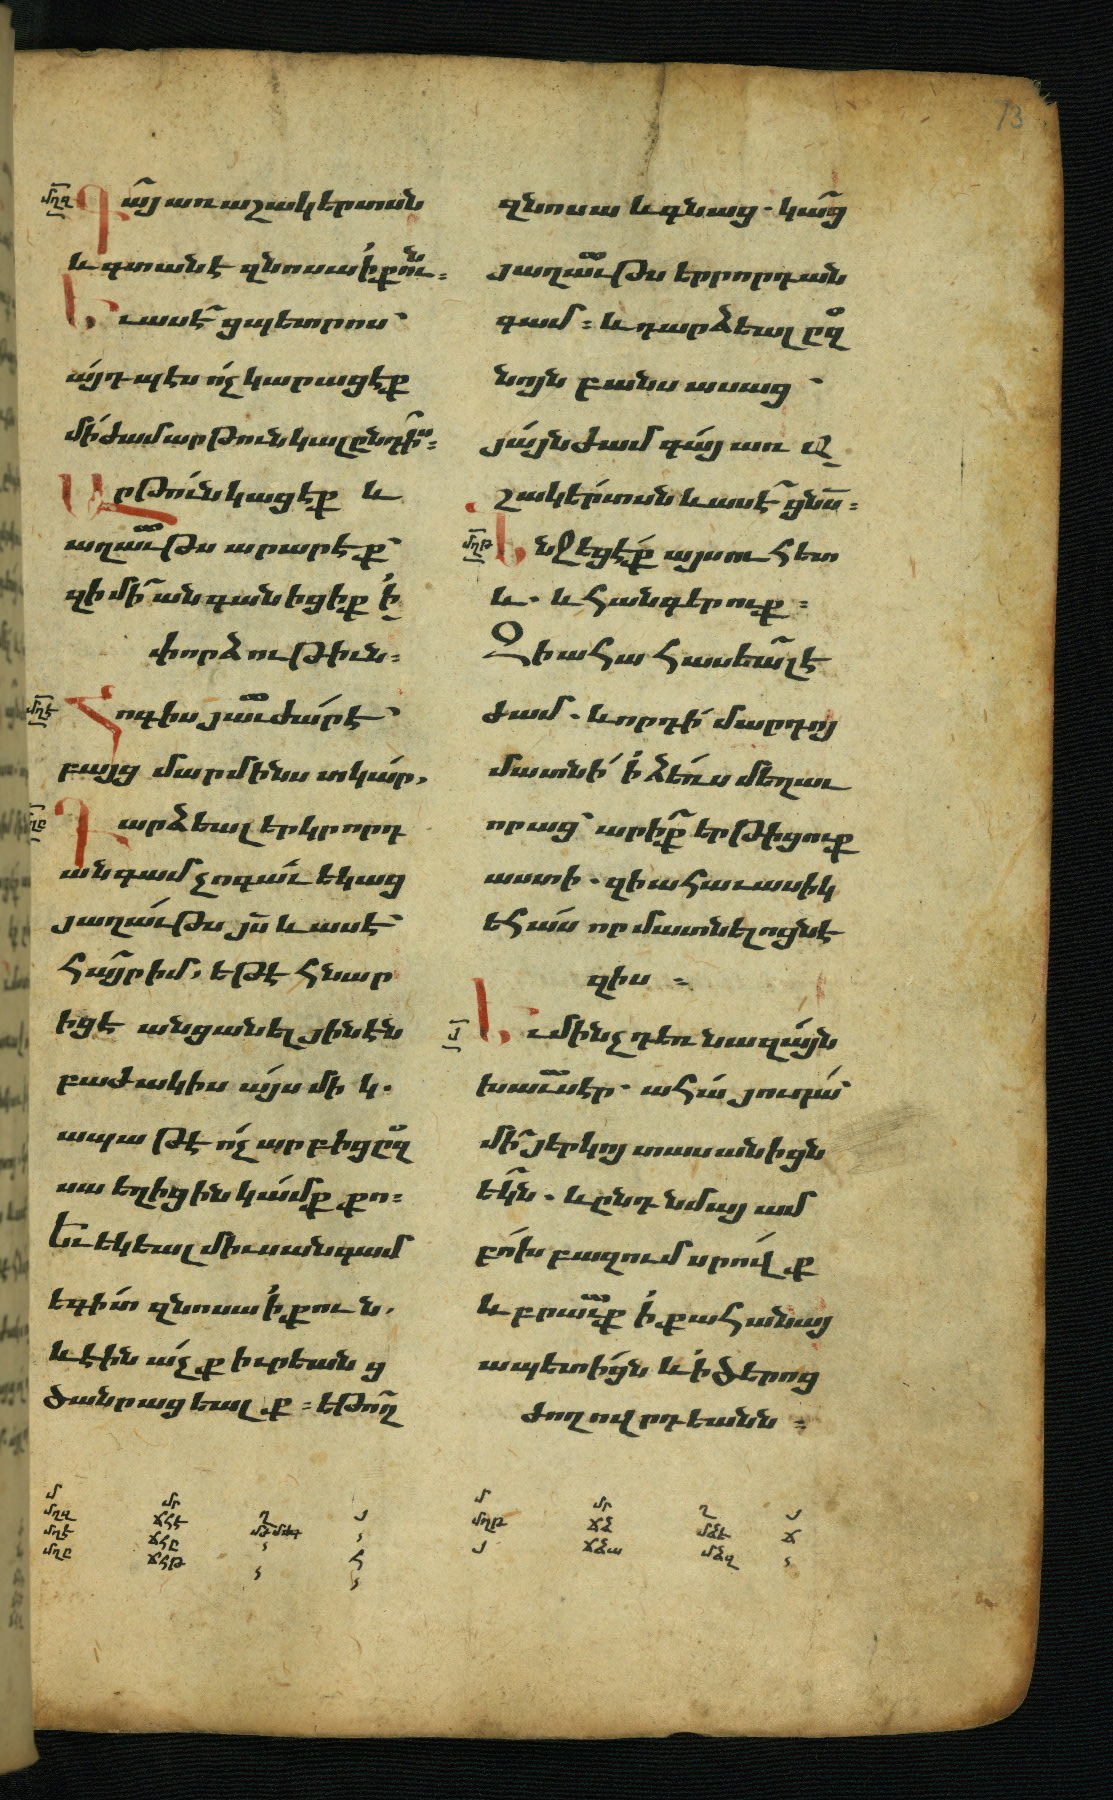 73
մղզ Գայ առ աշակերտսն
և գտանէ զնոսա ի քուն։
Եւ ասէ ցպետրոս՝
այդպէս ոչ կարացէք
մի ժամ արթուն կալ ընդ իս։
Արթուն կացէք և
աղաւթս արարէք՝
զի մի անգանիցիք ի
փորձութիւն։
մղէ Հոգիս յաւժար է՝
բայց մարմինս տկար,
մղը Դարձեալ երկրորդ
անգամ չոգաւ եկաց
յաղաւթս յս և ասէ՝
հայր իմ, եթէ հնար
իցէ անցանել յինէն
բաժակիս այս մի կ.
ապա թէ ոչ արբից ըզ
սա եղիցին կամք քո։
Եւ եկեալ միւսանգամ
եգիտ զնոսա ի քուն,
և էին աչք իւրեանց
ծանրացեալք։ եթող
զնոսա և գնաց. կաց
յաղաւթս երրորդ ան
գամ։ և դարձեալ ըզ
նոյն բանս ասաց՝
յայնժամ գայ առ ա
շակերտսն և ասէ ցնս։
մղթ Ննջեցէք այսուհետ
և. և հանգերուք։
Զի ահա հասեալ է
ժամ. և որդի մարդոյ
մատնի ի ձեռս մեղաւ
որաց՝ արիք երթիցուք
աստի. զի ահաւասիկ
եհաս որ մատնելոցնէ
զիս։
յ Եւ մինչդեռ նա զայն
խաւսէր. ահա յուդա՝
մի յերկոտասանիցն
եկն. և ընդ նմա յ ամ
բոխ բազում սրովք
և բրաւք ի քահանայ
ապետիցն և ի ծերոց
ժողովրդեանն։
մ մր ղ յ
մղզ ճհէ
մղէ ճհը
մղը ճհթ
մ մր ղ յ
մղթ ճձ մձե ճ
յ ճձա մձզ